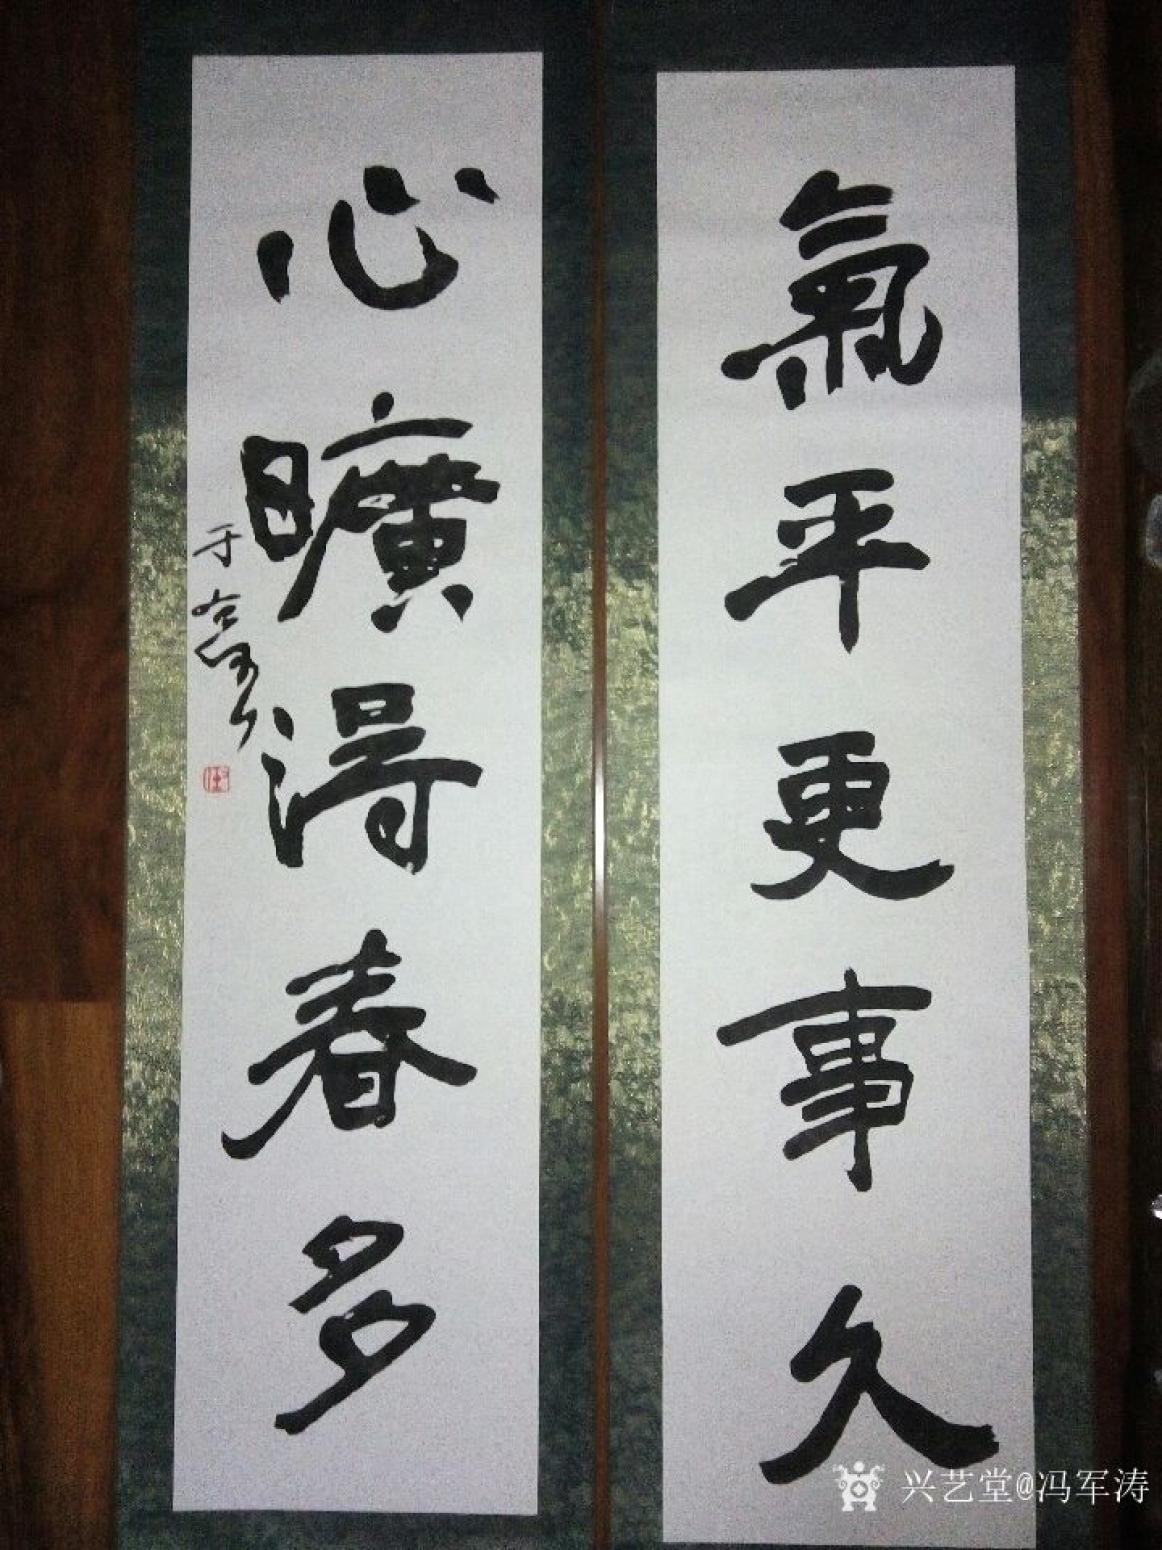 氣平更事久
心曠得春多
兴艺堂@冯军涛